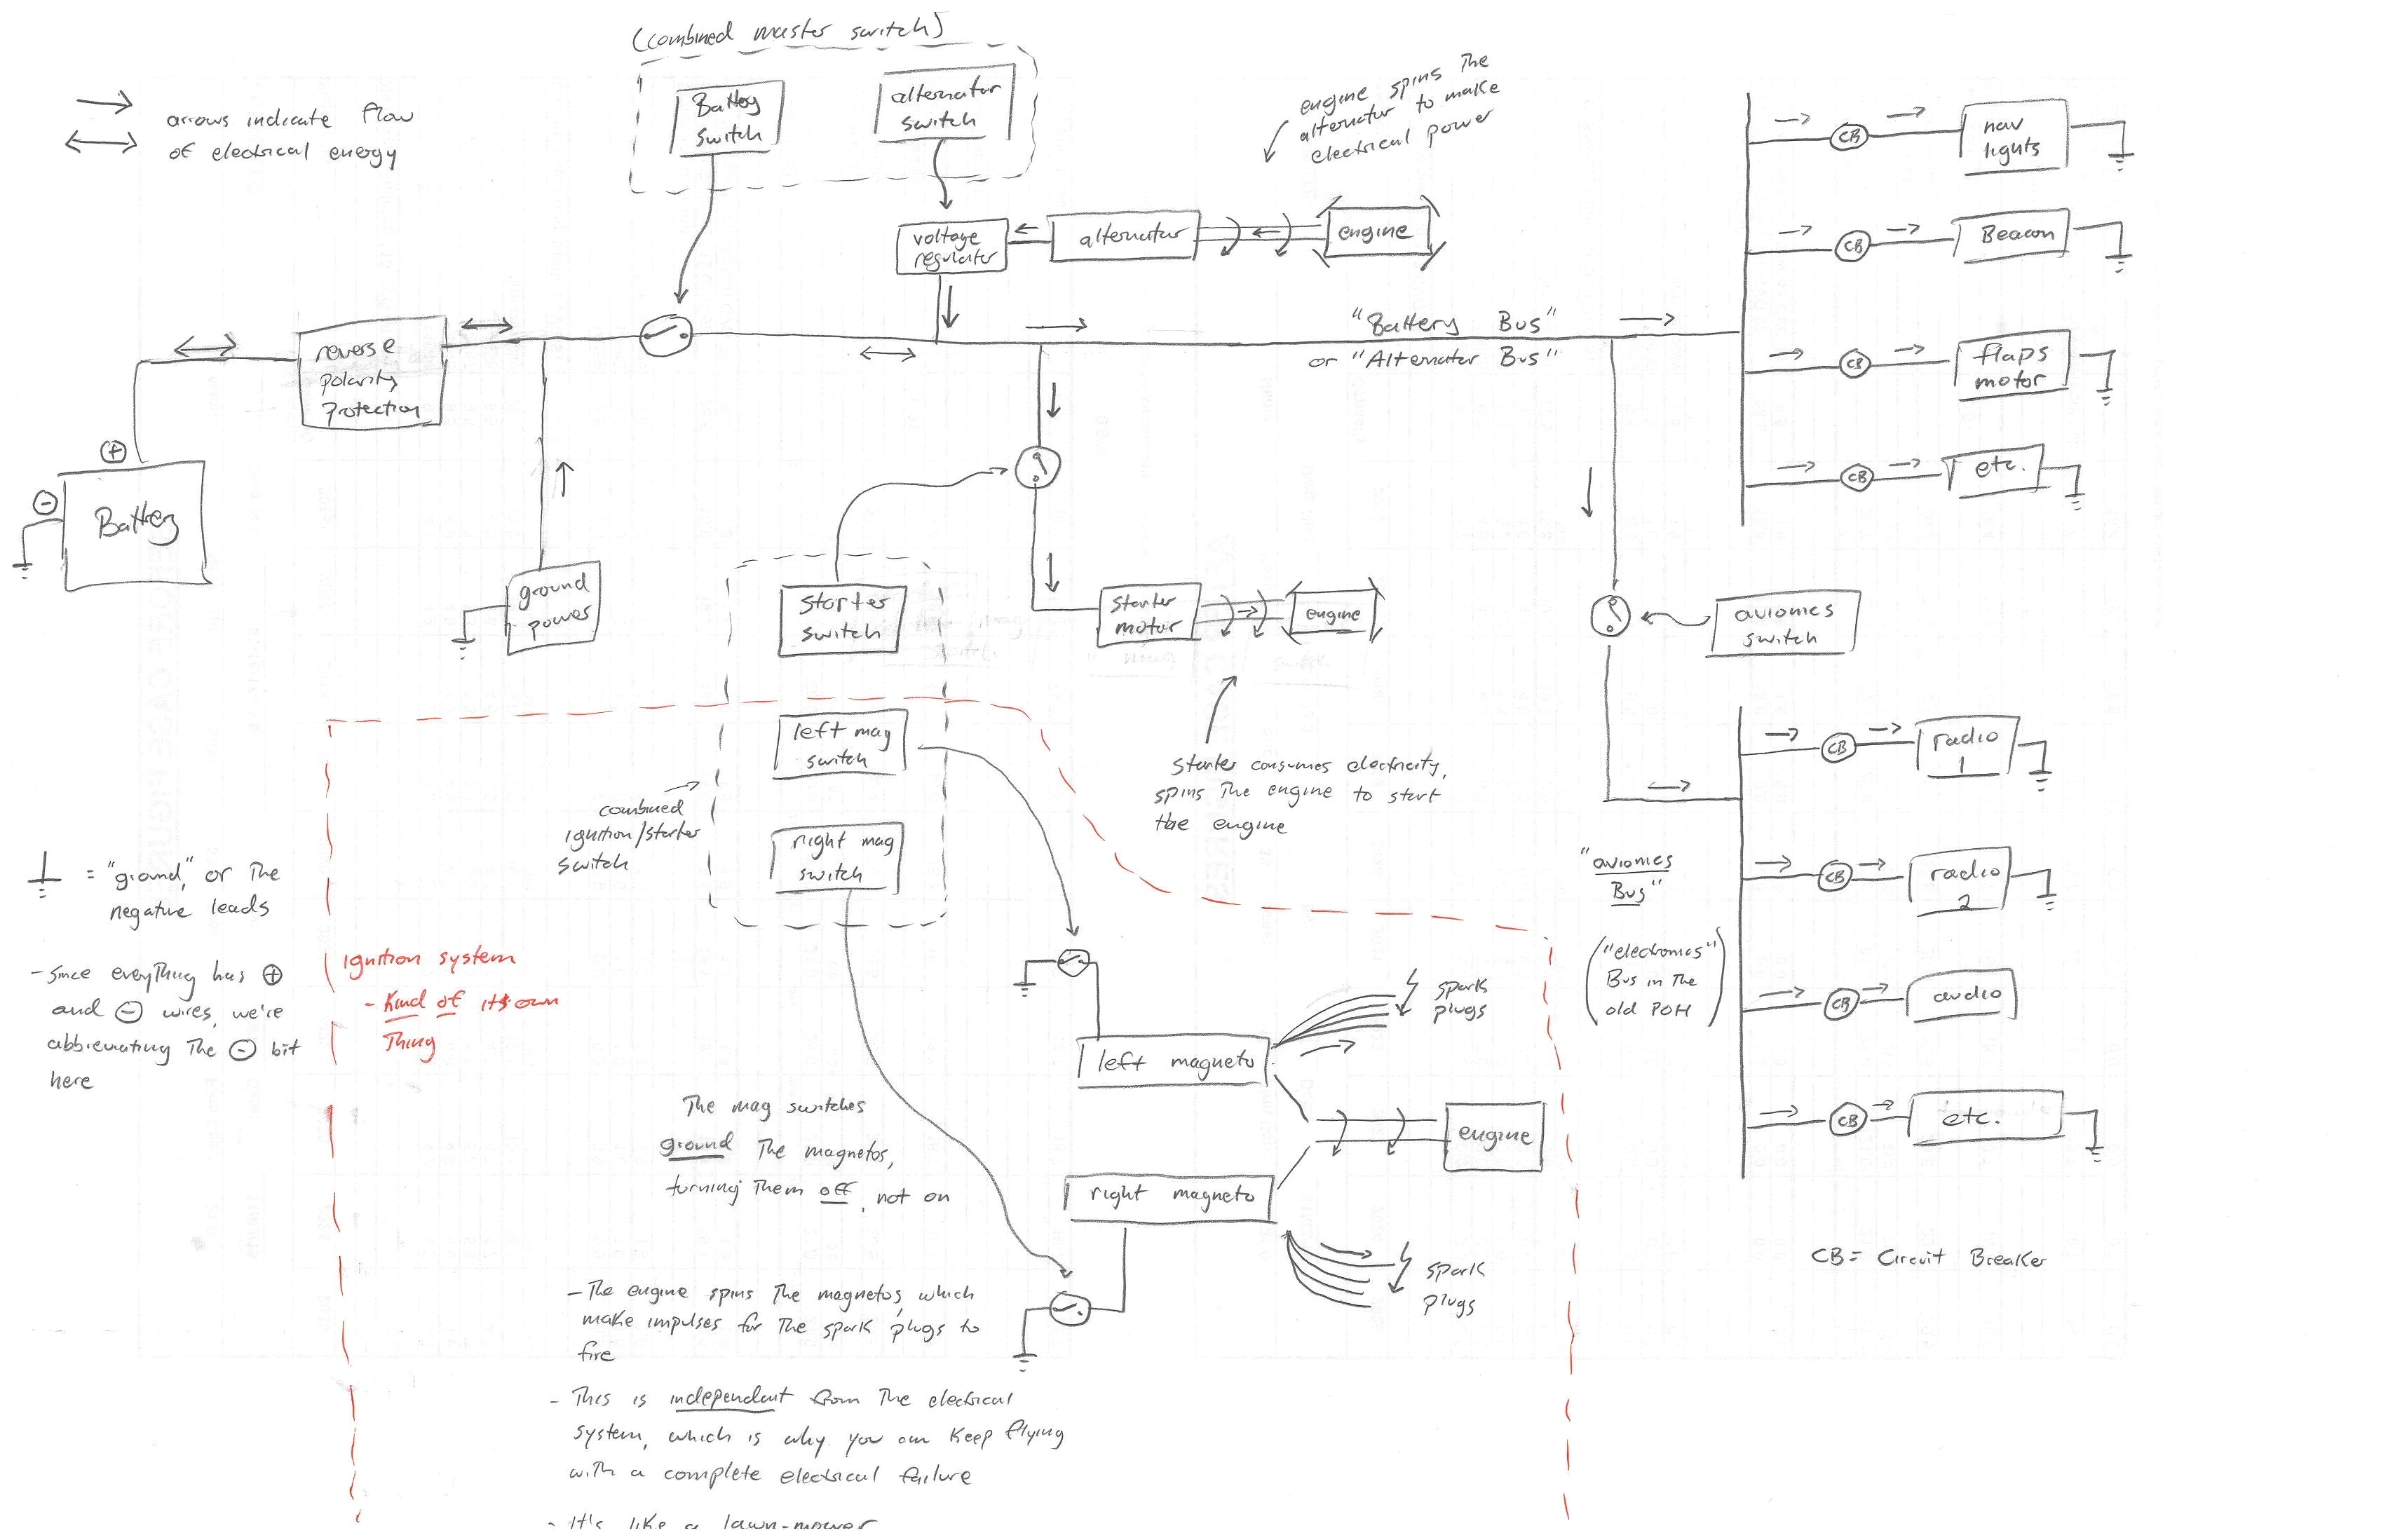 (combined master switch)
Battery
switch
alternator
switch
arrows indicate flow
of electrical energy
engine spins the
alternator to make
electrical power
voltage
regulator
alternator
engine
reverse
polarity
protection
"Battery Bus"
or "Alternator Bus"
CB
nav
lights
CB
Beacon
CB
flaps
motor
CB
etc.
+
-
Battery
ground
power
starter
switch
starter
motor
engine
avionics
switch
left mag
switch
right mag
switch
combined
ignition/starter
switch
starter consumes electricity,
spins the engine to start
the engine
CB
radio
1
CB
radio
2
CB
audio
CB
etc.
"avionics
Bus"
("electronics"
Bus in the
old POH)
= "ground," or the
negative leads
- since everything has +
and - wires, we're
abbreviating the - bit
here
ignition system
- kind of it's own
thing
spark
plugs
left magneto
engine
right magneto
spark
plugs
The mag switches
ground the magnetos,
turning them off, not on
CB = Circuit Breaker
- The engine spins the magnetos, which
make impulses for the spark plugs to
fire
- This is independent from the electrical
system, which is why you can keep flying
with a complete electrical failure
- It's like a lawn-mower